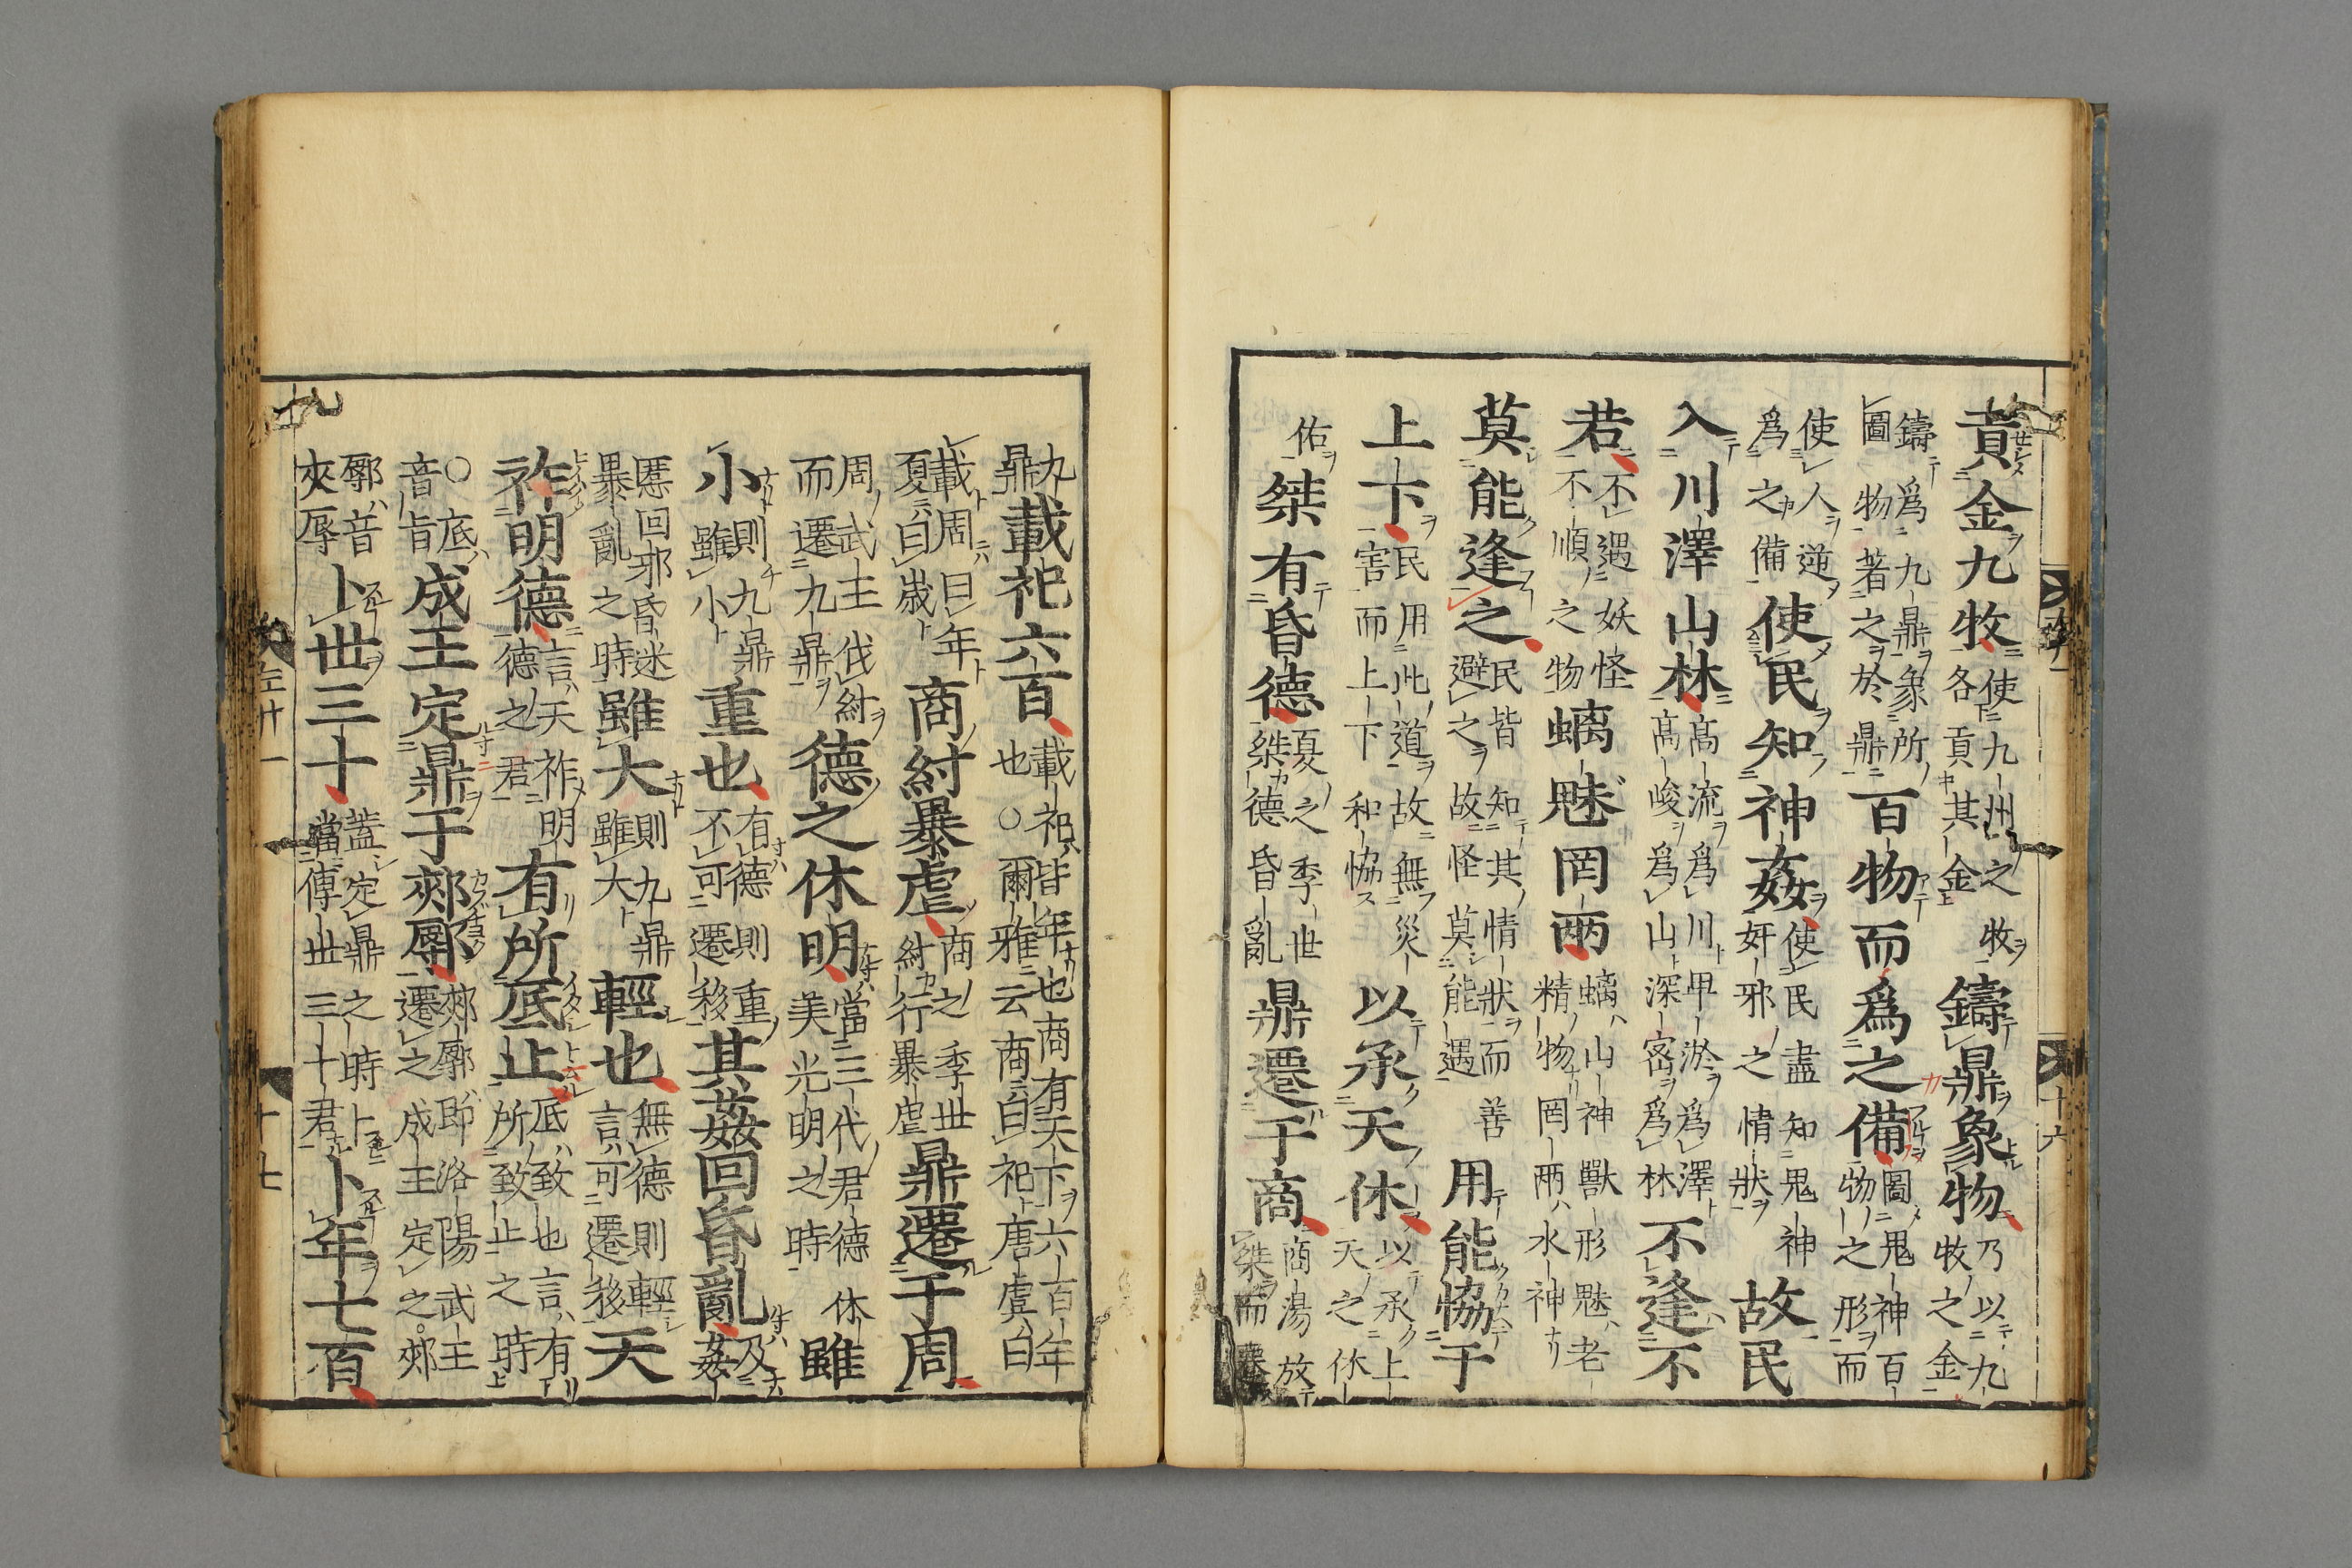 貢金九牧使九州之牧各貢其金鑄鼎象物乃以九牧之金
鑄爲九鼎象所圖物著之於鼎百物而爲之備圖鬼神百物之形而
使人逆爲之備使民知神姦使民盡知鬼神奸邪之情狀故民
入川澤山林高流爲川甲淤爲澤高峻爲山深宻爲林不逢不
若不遇妖怪不順之物螭魅罔兩螭山神獸形魅老精物罔兩水神
莫能逢之民皆知其情狀而善避之故怪莫能遇用能協于
上下民用此道故無災害而上下和協以承天休以承上天之休
佑桀有昏德夏之季世桀德昏亂鼎遷于商商湯放桀而
九鼎載祀六百載祀皆年也商有天下六百年也○爾雅云商曰祀唐虞曰
載周曰年夏曰歳商紂暴虐商之季世紂行暴虐鼎遷于周
周武王伐紂而遷九鼎德之休明當三代君德休美光明之時雖
小則九鼎雖小重也有德則重不可遷移其姦回昏亂及姦
慝回邪昏迷暴亂之時雖大則九鼎雖大輕也無德則輕言可遷移天
祚明德言天祚明德之君有所底止底致也言有所致止之時
○底音旨成王定鼎于郟鄏郟鄏即洛陽武王遷之成王定之○郟
鄏音夾辱卜世三十蓋定鼎之時卜當傳世三十君卜年七百
左十一
十六
左十一
十七